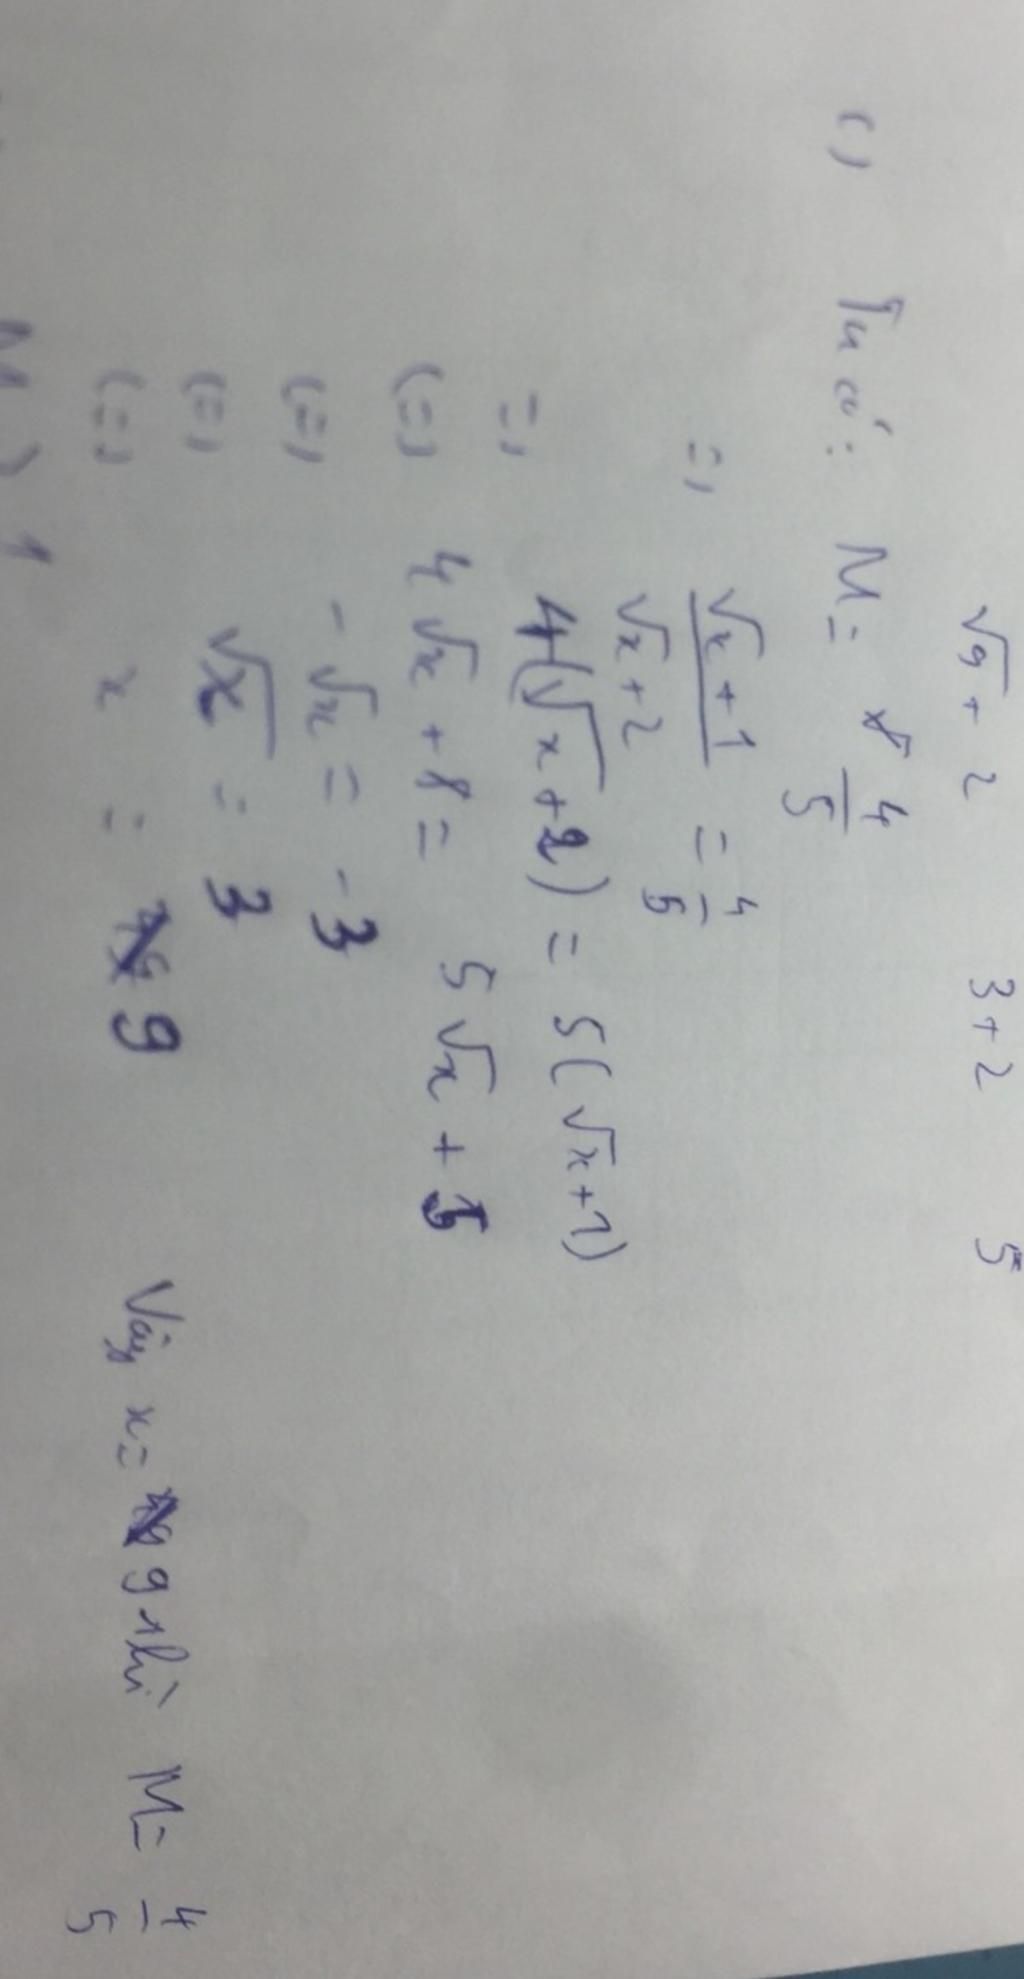 √9 + 2 3+2 5
c) Ta có: M = 4/5
=> (√x + 1)/(√x + 2) = 4/5
=> 4(√x + 2) = 5(√x + 1)
(=) 4√x + 8 = 5√x + 5
(=) -√x = -3
(=) √x = 3
(=) x = 9 Vậy x = 9 thì M = 4/5
M 1